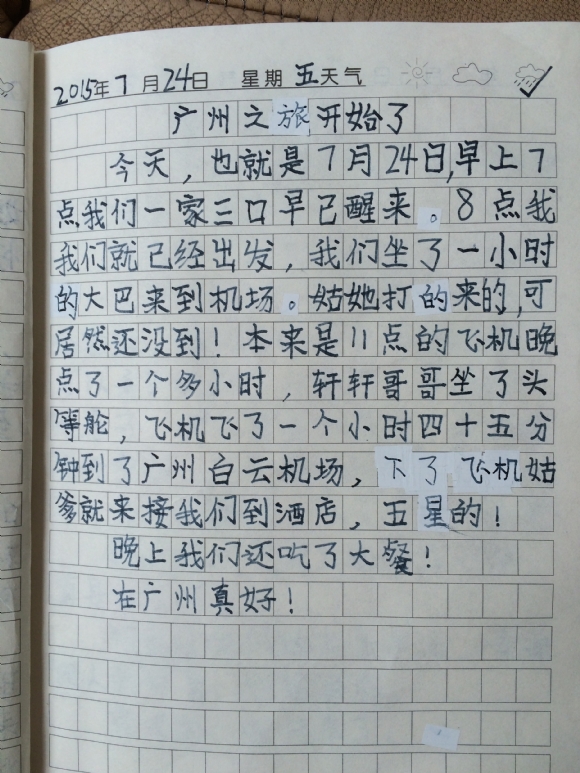 2015年7月24日 星期五天气
广州之旅开始了
今天，也就是7月24日,早上7
点我们一家三口早已醒来。8点我
我们就已经出发，我们坐了一小时
的大巴来到机场。姑她打的来的,可
居然还没到！本来是11点的飞机晚
点了一个多小时，轩轩哥哥坐了头
等舱，飞机飞了一个小时四十五分
钟到了广州白云机场，下了飞机姑
爹就来接我们到酒店，五星的！
晚上我们还吃了大餐！
在广州真好！